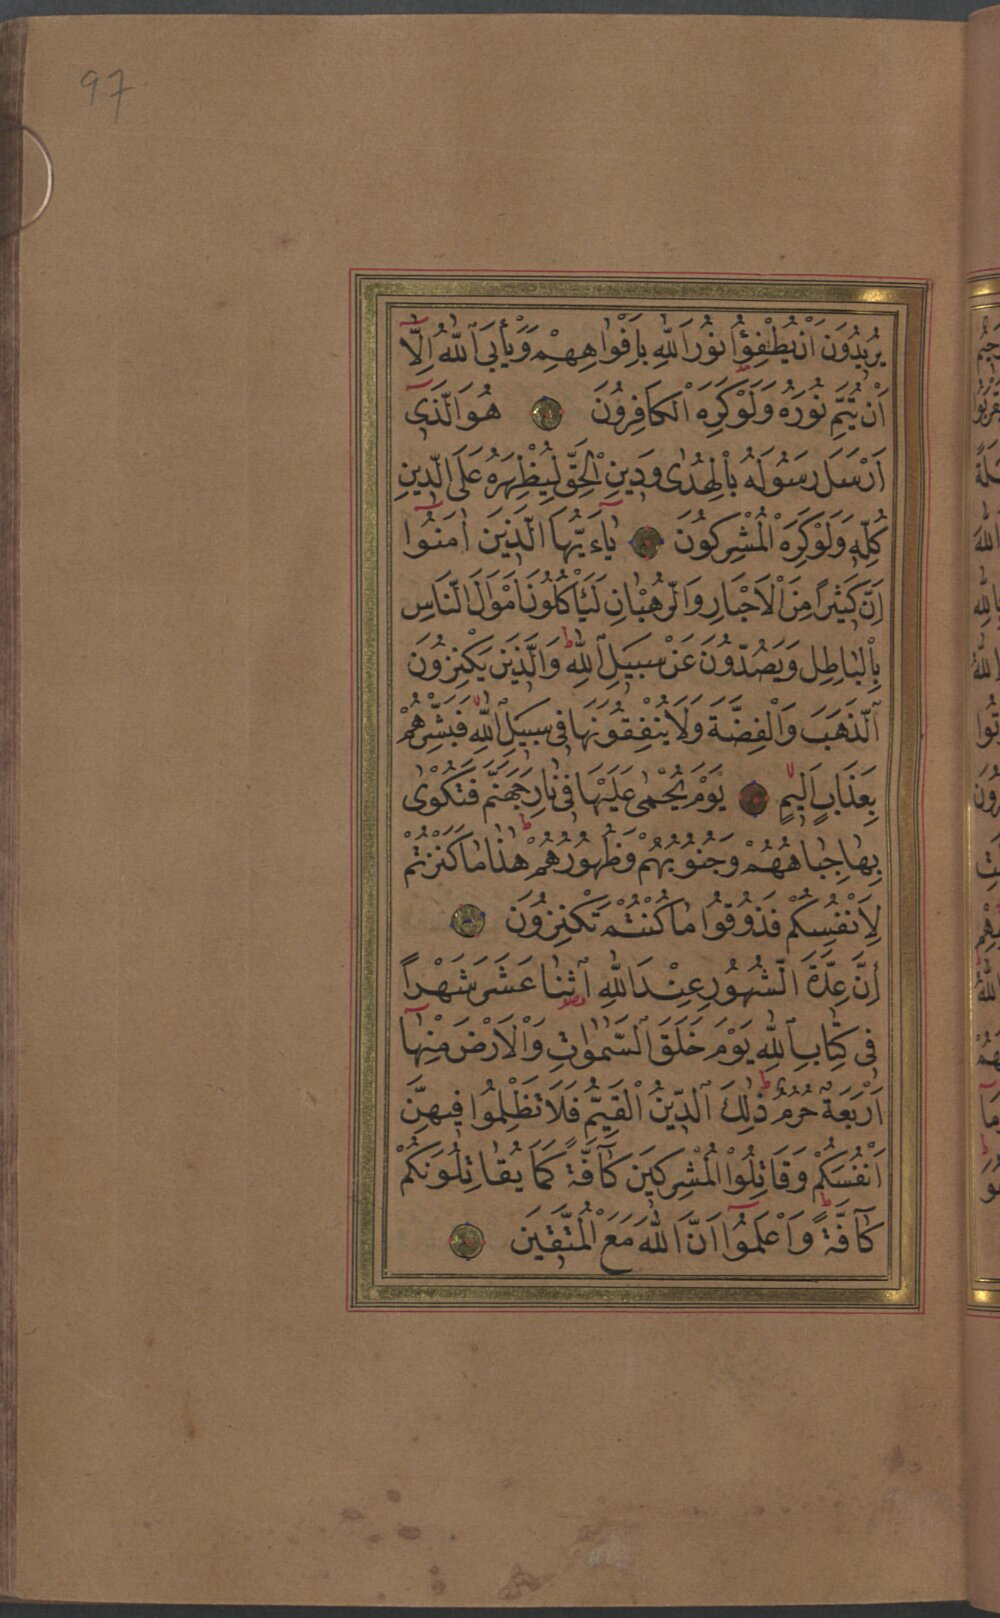 97
يُرِيدُونَ اَنْ يُطْفِؤُا نُورَ اللّٰهِ بِاَفْوَاهِهِمْ وَيَأْبَى اللّٰهُ اِلَّٓا
اَنْ يُتِمَّ نُورَهُ وَلَوْ كَرِهَ الْكَافِرُونَ هُوَ الَّذٓى
اَرْسَلَ رَسُولَهُ بِالْهُدٰى وَدِينِ الْحَقِّ لِيُظْهِرَهُ عَلَى الدِّينِ
كُلِّهِ وَلَوْ كَرِهَ الْمُشْرِكُونَ يٰٓاءَيُّهَا الَّذِينَ اٰمَنُوٓا
اِنَّ كَثِيرًا مِنَ الْاَحْبَارِ وَالرُّهْبَانِ لَيَأْكُلُونَ اَمْوَالَ النَّاسِ
بِالْبَاطِلِ وَيَصُدُّونَ عَنْ سَبِيلِ اللّٰهِ ط وَالَّذِينَ يَكْنِزُونَ
الذَّهَبَ وَالْفِضَّةَ وَلَا يُنْفِقُونَهَا فِى سَبِيلِ اللّٰهِ لا فَبَشِّرْهُمْ
بِعَذَابٍ اَلِيمٍ لا يَوْمَ يُحْمٰى عَلَيْهَا فِى نَارِ جَهَنَّمَ فَتُكْوٰى
بِهَا جِبَاهُهُمْ وَجُنُوبُهُمْ وَظُهُورُهُمْ ط هٰذَا مَا كَنَزْتُمْ
لِاَنْفُسِكُمْ فَذُوقُوا مَا كُنْتُمْ تَكْنِزُونَ
اِنَّ عِدَّةَ الشُّهُورِ عِنْدَ اللّٰهِ اثْنَا عَشَرَ شَهْرًا
فِى كِتَابِ اللّٰهِ يَوْمَ خَلَقَ السَّمٰوَاتِ وَالْاَرْضَ مِنْهَٓا
اَرْبَعَةٌ حُرُمٌ ط ذٰلِكَ الدِّينُ الْقَيِّمُ فَلَا تَظْلِمُوا فِيهِنَّ
اَنْفُسَكُمْ وَقَاتِلُوا الْمُشْرِكِينَ كَٓافَّةً كَمَا يُقَاتِلُونَكُمْ
كَٓافَّةً ط وَاعْلَمُوٓا اَنَّ اللّٰهَ مَعَ الْمُتَّقِينَ